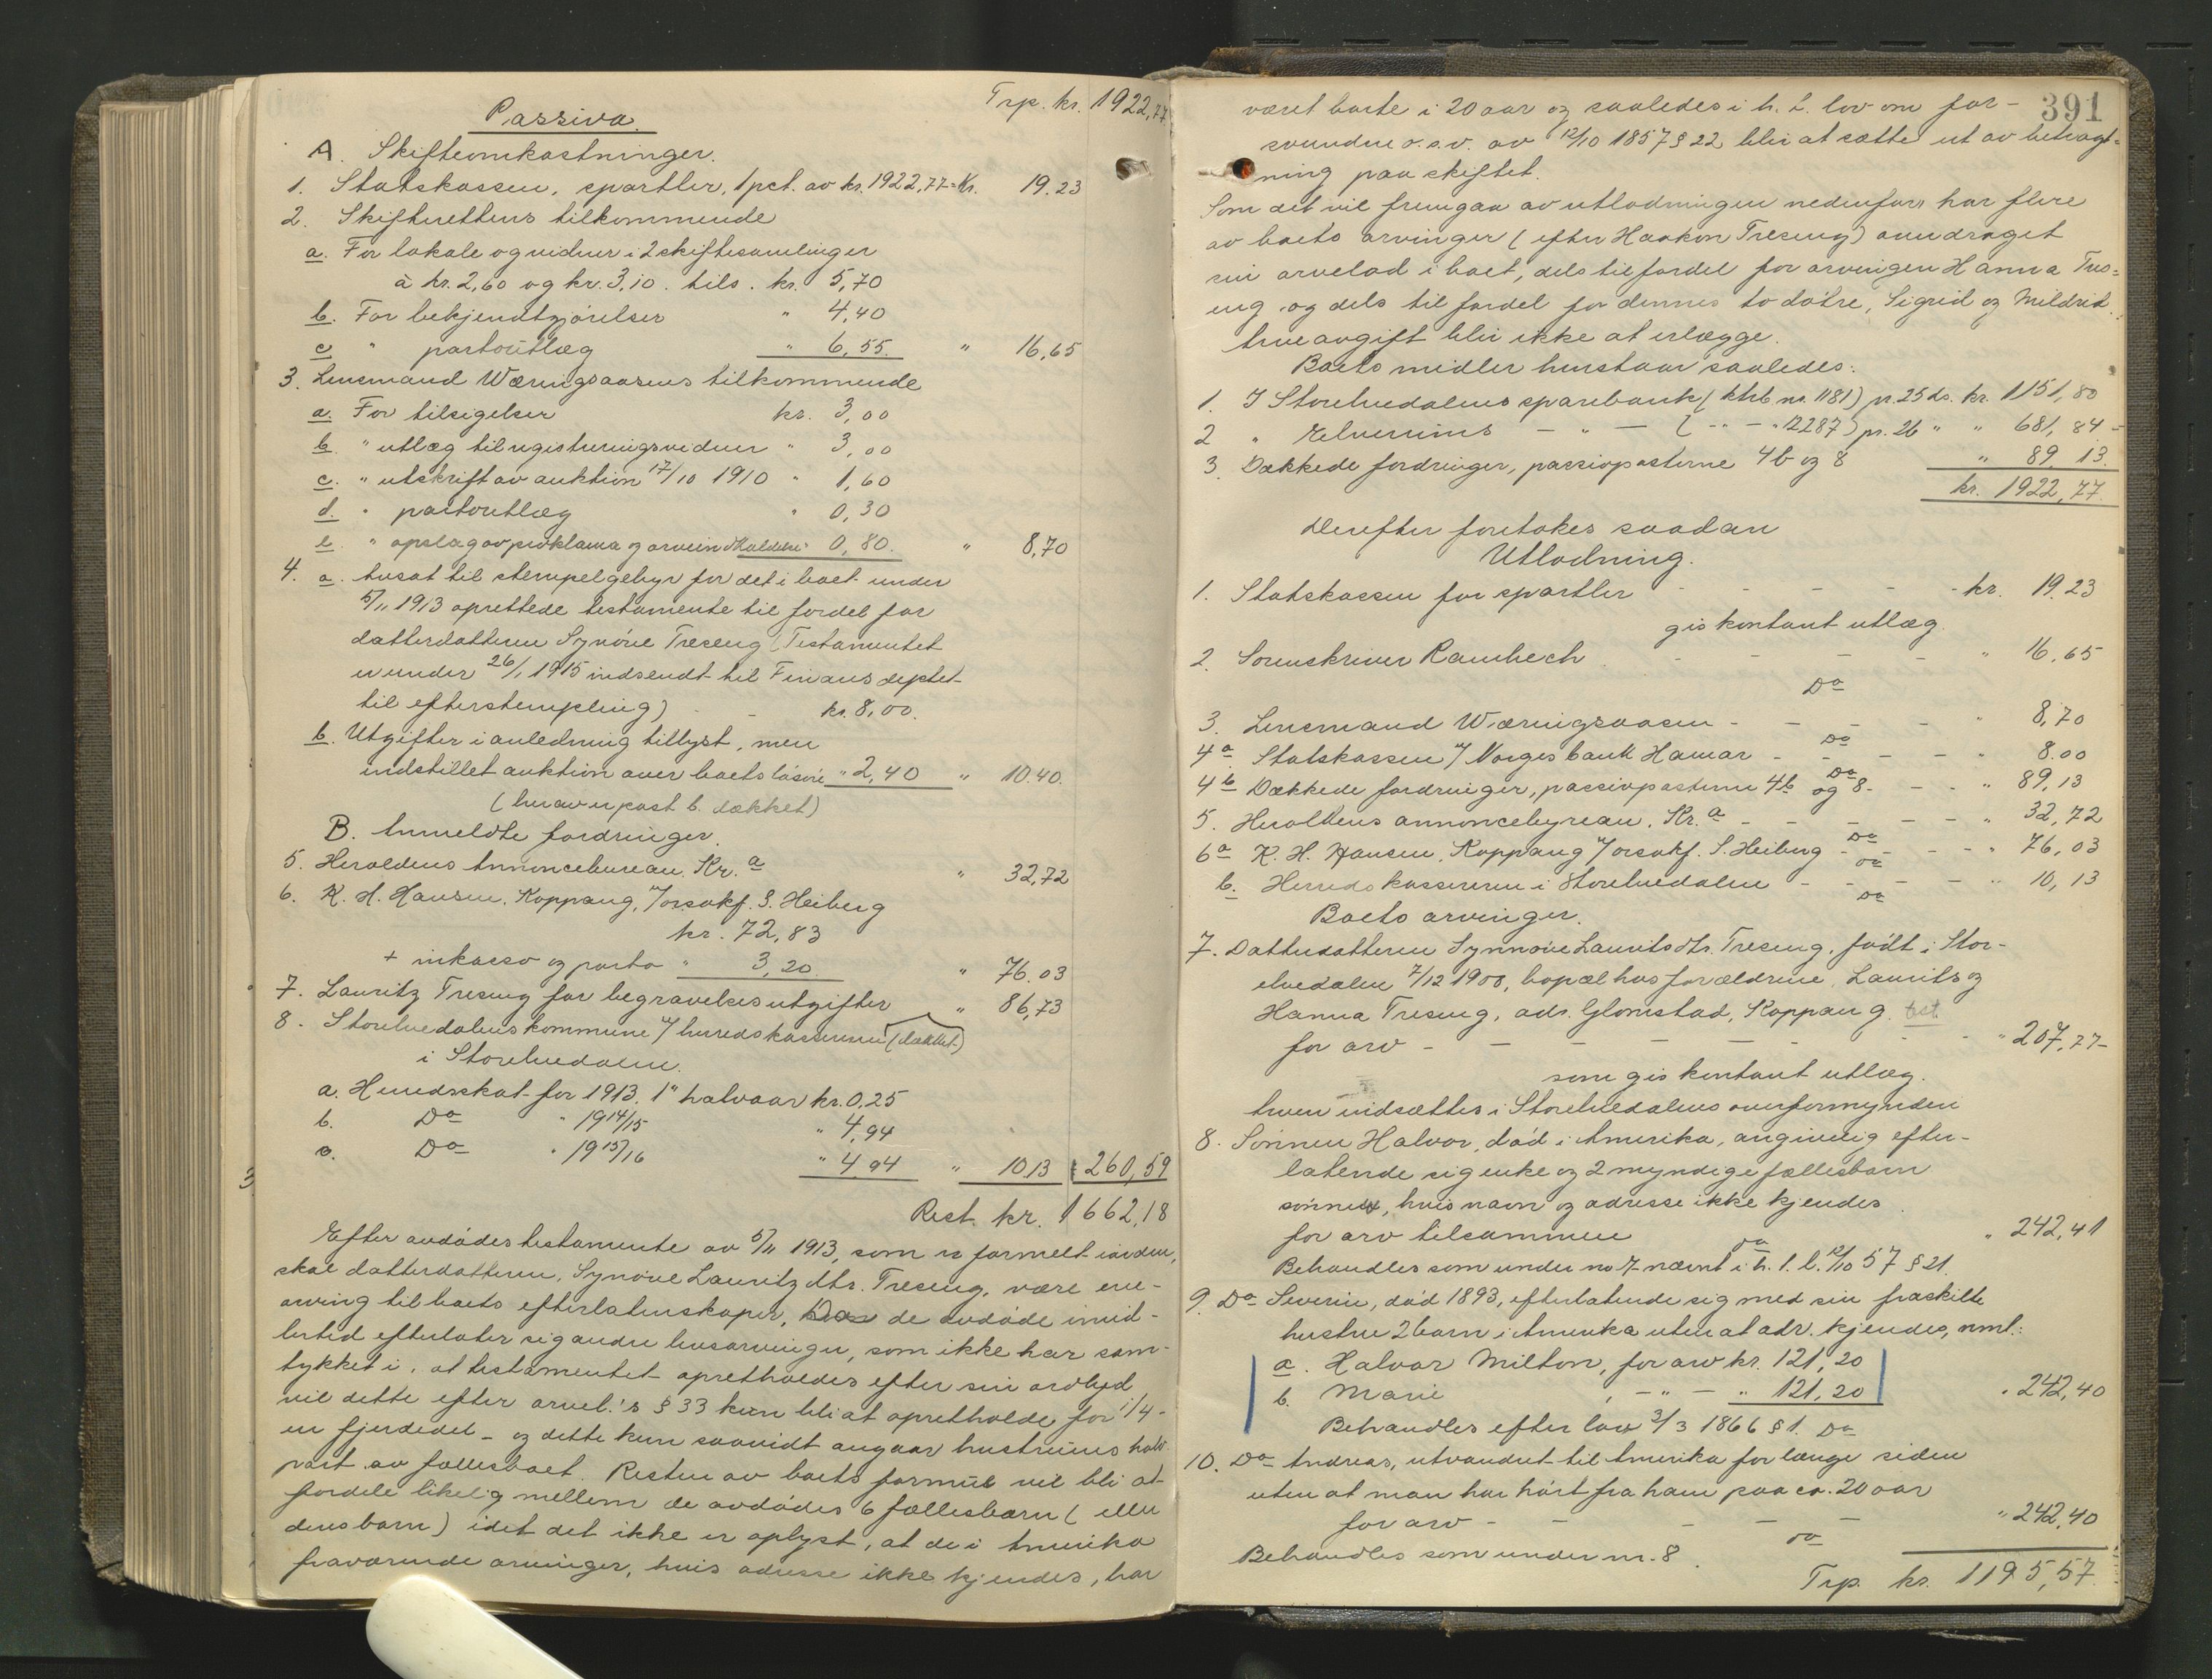 Trp. kr. 1922,77
Passiva.
A. Skifteomkostninger.
1. Statskassen, sportler, 1 pct. av kr. 1922,77 = Kr. 19.23
2. Skifterettens tilkommende
a. For lokale og vidner i 2 skiftesamlinger
à kr. 2,60 og kr. 3,10. tils. kr. 5,70
b. For bekjendtgjørelser " 4,40
c " portoutlæg " 6,55. " 16,65
3. Lensmand Wæringsaasens tilkommende
a. For tilsigelser kr. 3,00
b. " utlæg til registreringsvidner " 3,00
c. " utskrift av auktion 17/10 1910 " 1,60
d. " portoutlæg " 0,30
e. " opslag av proklama og arveind 0,80. " 8,70
4. a. Ansat til stempelgebyr for det i boet under
5/11 1913 oprettede testamente til fordel for
datterdatteren Synöve Treseng (Testamentet
er under 26/1 1915 indsendt til Finansdeptet
til efterstempling) - - kr. 8,00.
b. Utgifter i anledning tillyst, men
indstillet auktion over boets løsøre " 2,40 " 10.40.
(herav er post b. dækket)
B. Anmeldte fordringer.
5. Heroldens Annoncebureau. Kr.a " 32,72
6. K. H. Hansen, Koppang, v/ orsakf. S. Heiberg
kr. 72,83
+ inkasso og porto " 3,20. " 76.03
7. Lauritz Treseng for begravelsesutgifter " 86,73
8. Storelvedalens kommune v/ herredskassereren (dækket)
i Storelvedalen.
a. Herredsskat for 1913. 1" halvaar kr. 0,25
b. Do " 1914/15 " 4,94
c. Do " 1915/16 " 4,94 " 10,13 260,59
Rest. kr. 1662,18
Efter avdødes testamente av 5/11 1913, som er formelt iorden,
skal datterdatteren, Synöve Lauritzdtr. Treseng, være ene-
arving til boets efterlatenskaper, de avdøde imid-
lertid efterlater sig andre livsarvinger, som ikke har sam-
tykket i, at testamentet opretholdes efter sin ordlyd
vil dette efter arvel.'s § 33 kun bli at opretholde for 1/4 -
en fjerdedel - og dette kun saavidt angaar hustruens halv
part av fællesboet. Resten av boets formue vil bli at
fordele likelig mellem de avdødes 6 fællesbarn (eller
deres barn) idet det ikke er oplyst, at de i Amerika
fraværende arvinger, hvis adresse ikke kjendes, har
391
været borte i 20 aar og saaledes i h. t. lov om for-
svundne o.s.v. av 12/10 1857 § 22 blir at sætte ut av betragt-
ning paa skiftet.
Som det vil fremgaa av utlodningen nedenfor, har flere
av boets arvinger (efter Haakon Treseng) overdraget
sin arvelod i boet, dels til fordel for arvingen Hanna Tres-
eng og dels til fordel for dennes to døtre, Sigrid og Mildrid.
Arveavgift blir ikke at erlægge.
Boets midler henstaar saaledes:
1. I Storelvedalens sparebank (ktrb no. 1181) pr. 25 ds. kr. 1151,80
2 " Elverums - " - ( " - " 12287) pr. 26 " " 681,84 -
3. Dækkede fordringer, passivposterne 4b og 8 " 89.13.
kr. 1922,77.
Derefter foretokes saadan
Utlodning.
1. Statskassen for sportler - - - - kr. 19.23
gis kontant utlæg.
2. Sorenskriver Rambech - - - - " 16.65
Do
3. Lensmand Wæringsaasen - - - - " 8,70
Do
4a Statskassen v/ Norges bank Hamar - - - - " 8.00
Do
4b Dækkede fordringer, passivposterne 4b og 8 - - - " 89,13
5. Heroldens annoncebyreau, Kr.a - - - - " 32,72
Do
6a K. H. Hansen, Koppang v/ orsakf. S. Heiberg - - - " 76,03
Do
b. Herredskassereren i Storelvedalen - - - - " 10,13
Do
Boets arvinger.
7. Datterdatteren Synnöve Lauritsdtr. Treseng, født i Stor-
elvedalen 7/12 1900, bopæl hos forældrene, Laurits og
Hanna Treseng, adr. Glomstad, Koppang. test.
for arv - - - - - - " 207,77-
som gis kontant utlæg.
Arven indsættes i Storelvedalens overformynderi
8. Sønnen Halvor, død i Amerika, angivelig efter-
latende sig enke og 2 myndige fællesbarn
sønner, hvis navn og adresse ikke kjendes
for arv tilsammen " 242,41
Do
Behandles som under no 7 nævnt i h. t. l. 12/10 57 § 21.
9. Do Severin, død 1893, efterlatende sig med sin fraskilte
hustru 2 barn i Amerika uten at adr. kjendes, nml.:
a. Halvor Milton, for arv kr. 121,20
b. Marie, - " - " 121,20 " 242,40
Behandles efter lov 3/3 1866 § 1. Do
10. Do Andreas, utvandret til Amerika for længe siden
uten at man har hørt fra ham paa ca. 20 aar
for arv - - - - - " 242,40
Do
Behandles som under nr. 8.
Trp. kr. 1195,57.